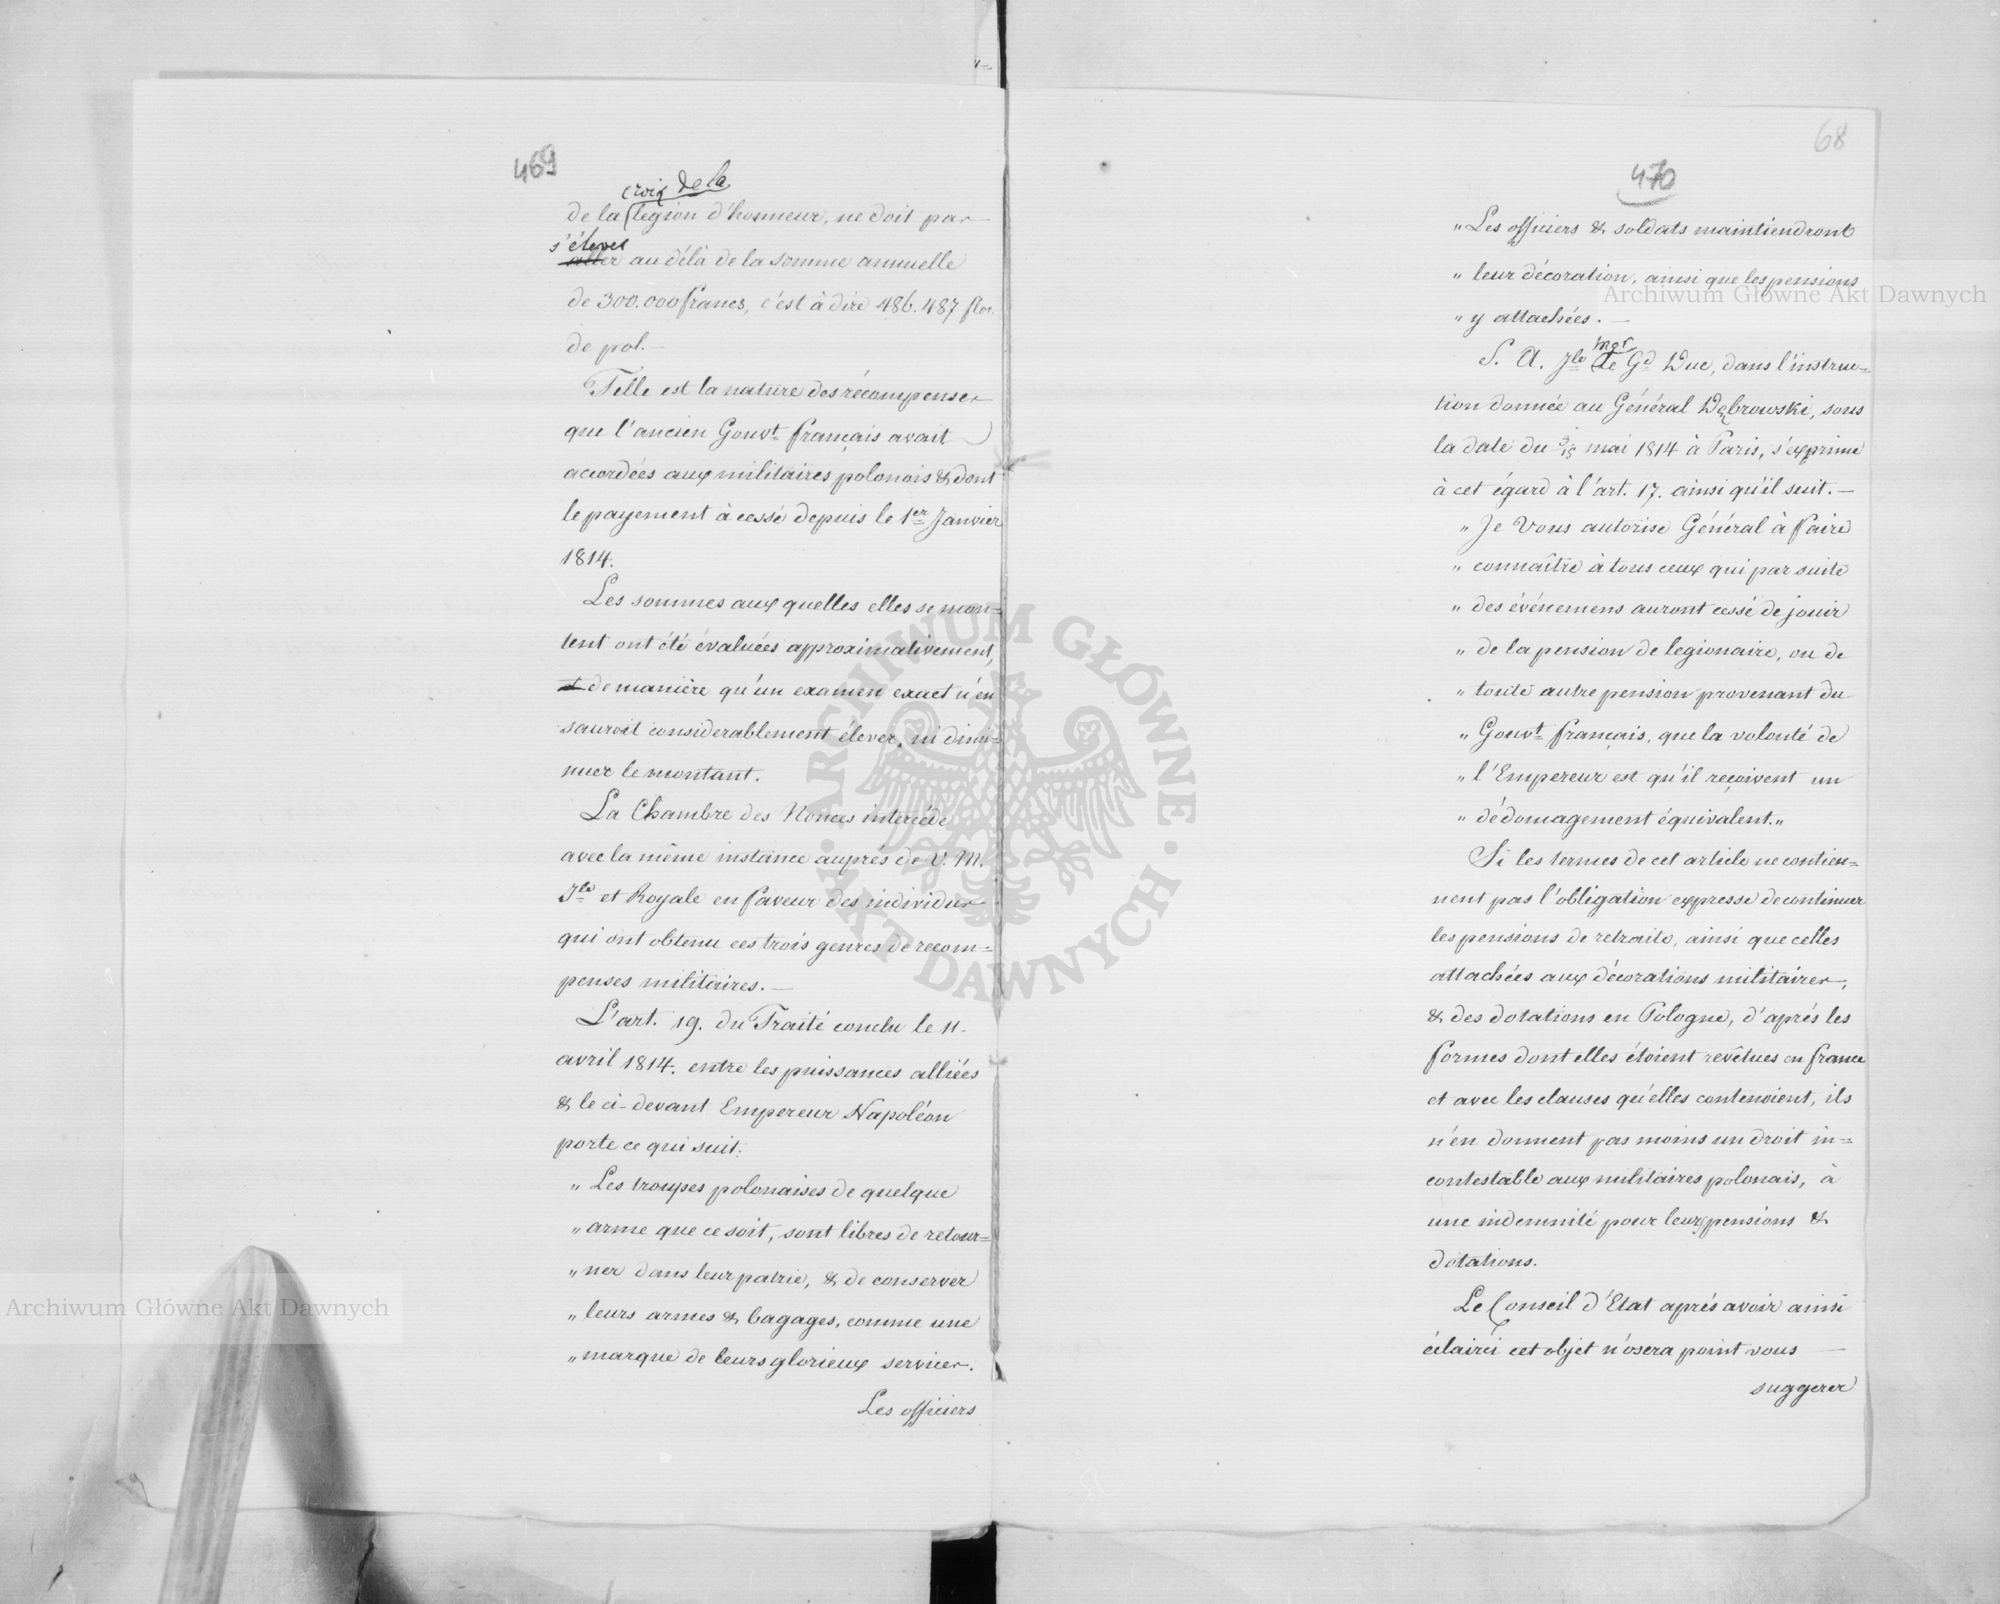 469
croix de la
de la legion d'honneur, ne doit pas
s'élever
aller au délà de la somme annuelle
de 300.000 francs, c'est à dire 486.487 flor.
de pol. —
Telle est la nature des récompenses
que l'ancien Gouvt français avait
accordées aux militaires polonois & dont
le payement à cessé depuis le 1er Janvier
1814.
Les sommes aux quelles elles se mon=
tent ont été évaluées approximativement,
et de manière qu'un examen exact n'en
sauroit considerablement élever, ni dimi=
nuer le montant.
La Chambre des Nonces intercède
avec la même instance auprés de V. M.
Jle et Royale en faveur des individus
qui ont obtenu ces trois genres de recom=
penses militaires. —
L'art. 19. du Traité conclu le 11.
avril 1814. entre les puissances alliées
& le ci-devant Empereur Napoléon
porte ce qui suit:
„ Les troupes polonaises de quelque
„ arme que ce soit, sont libres de retour=
„ ner dans leur patrie, & de conserver
„ leurs armes & bagages, comme une
„ marque de leurs glorieux services.
Les officiers
68
470
„ Les officiers & soldats maintiendront
„ leur décoration, ainsi que les pensions
„ y attachées. —
Mgr
S. A. Jle le Gd Duc, dans l'instruc=
tion donnée au Général Dąbrowski, sous
la date du 3/15 mai 1814 à Paris, s'exprime
à cet égard à l'art. 17. ainsi qu'il suit. —
„ Je Vous autorise Général à faire
„ connaître à tous ceux qui par suite
„ des événemens auront cessé de jouir
„ de la pension de legionaire, ou de
„ toute autre pension provenant du
„ Gouvt français, que la volonté de
„ l'Empereur est qu'il reçoivent un
„ dédomagement équivalent."
Si les termes de cet article ne contien=
nent pas l'obligation expresse de continuer
les pensions de retraite, ainsi que celles
attachées aux décorations militaires,
& des dotations en Pologne, d'aprés les
formes dont elles étoient revêtues en france
et avec les clauses qu'elles contenoient, ils
n'en donnent pas moins un droit in=
contestable aux militaires polonais, à
une indemnité pour leurs pensions &
dotations.
Le Conseil d'Etat aprés avoir ainsi
éclairci cet objet n'osera point vous —
suggerer
Archiwum Główne Akt Dawnych
Archiwum Główne Akt Dawnych
ARCHIWUM GŁÓWNE AKT DAWNYCH